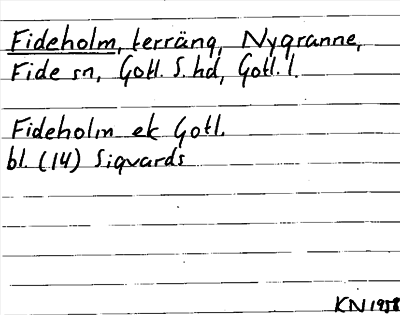 Fideholm, terräng, Nygranne,
Fide sn, Gotl. S. hd, Gotl. l.
Fideholm ek Gotl.
bl. (14) Sigvards
KN 1958